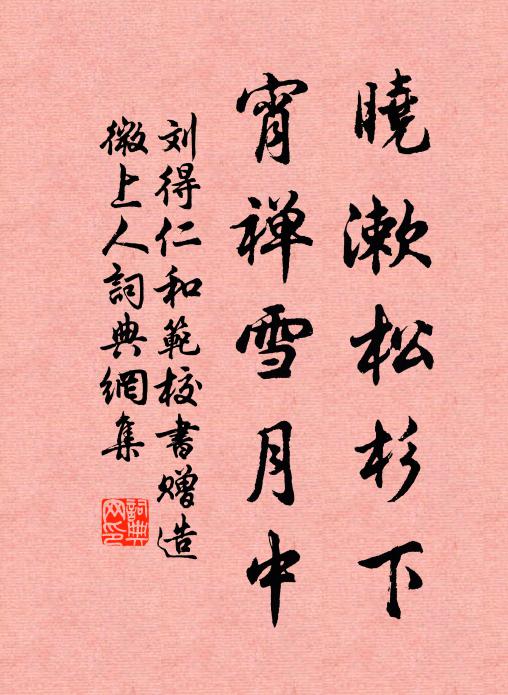 曉漱松杉下
宵禅雪月中
刘得仁和範校書赠造
微上人詞典網集
詞典网印